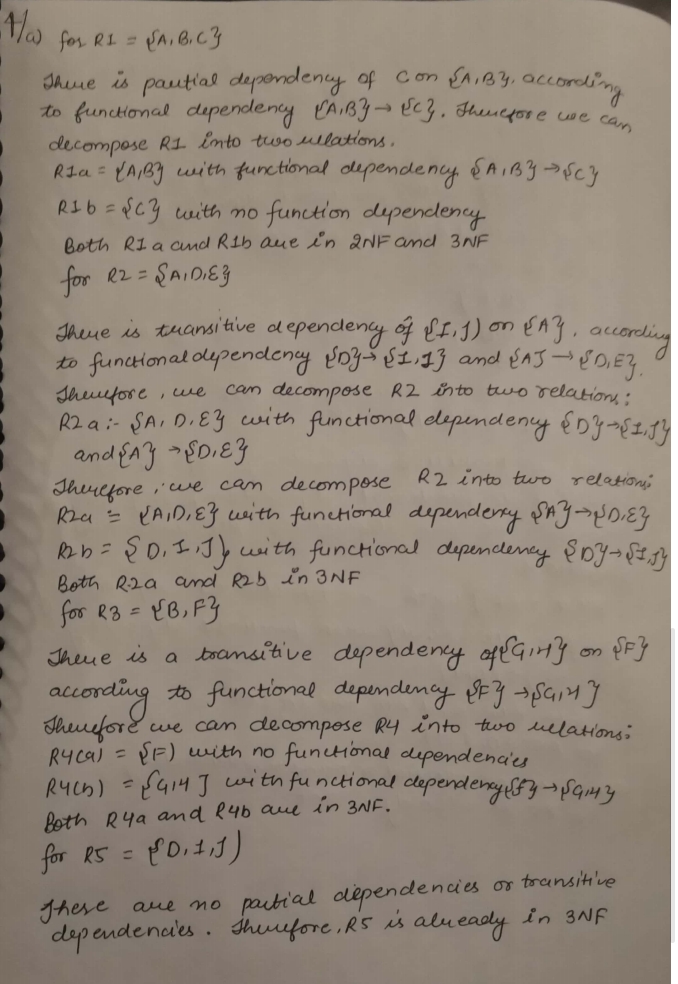 4/a) for R1 = {A,B,C}
There is partial dependency of C on {A,B}, according
to functional dependency {A,B} → {C}. Therefore we can
decompose R1 into two relations.
R1a = {A,B} with functional dependency {A,B} → {C}
R1b = {C} with no function dependency
Both R1a and R1b are in 2NF and 3NF
for R2 = {A,D,E}
There is transitive dependency of {I,J) on {A}, according
to functional dependency {D} → {I,J} and {A} → {D,E}.
Therefore, we can decompose R2 into two relations:
R2a :- {A, D, E} with functional dependency {D} → {I,J}
and {A} → {D,E}
Therefore, we can decompose R2 into two relations;
R2a = {A,D,E} with functional dependency {A} → {D,E}
R2b = {D, I, J} with functional dependency {D} → {I,J}
Both R2a and R2b in 3NF
for R3 = {B,F}
There is a transitive dependency of {G,H} on {F}
according to functional dependency {F} → {G,H}
Therefore we can decompose R4 into two relations:
R4(a) = {F) with no functional dependencies
R4(b) = {G,H] with functional dependency {F} → {G,H}
Both R4a and R4b are in 3NF.
for R5 = {D,I,J)
These are no partial dependencies or transitive
dependencies. Therefore, R5 is already in 3NF